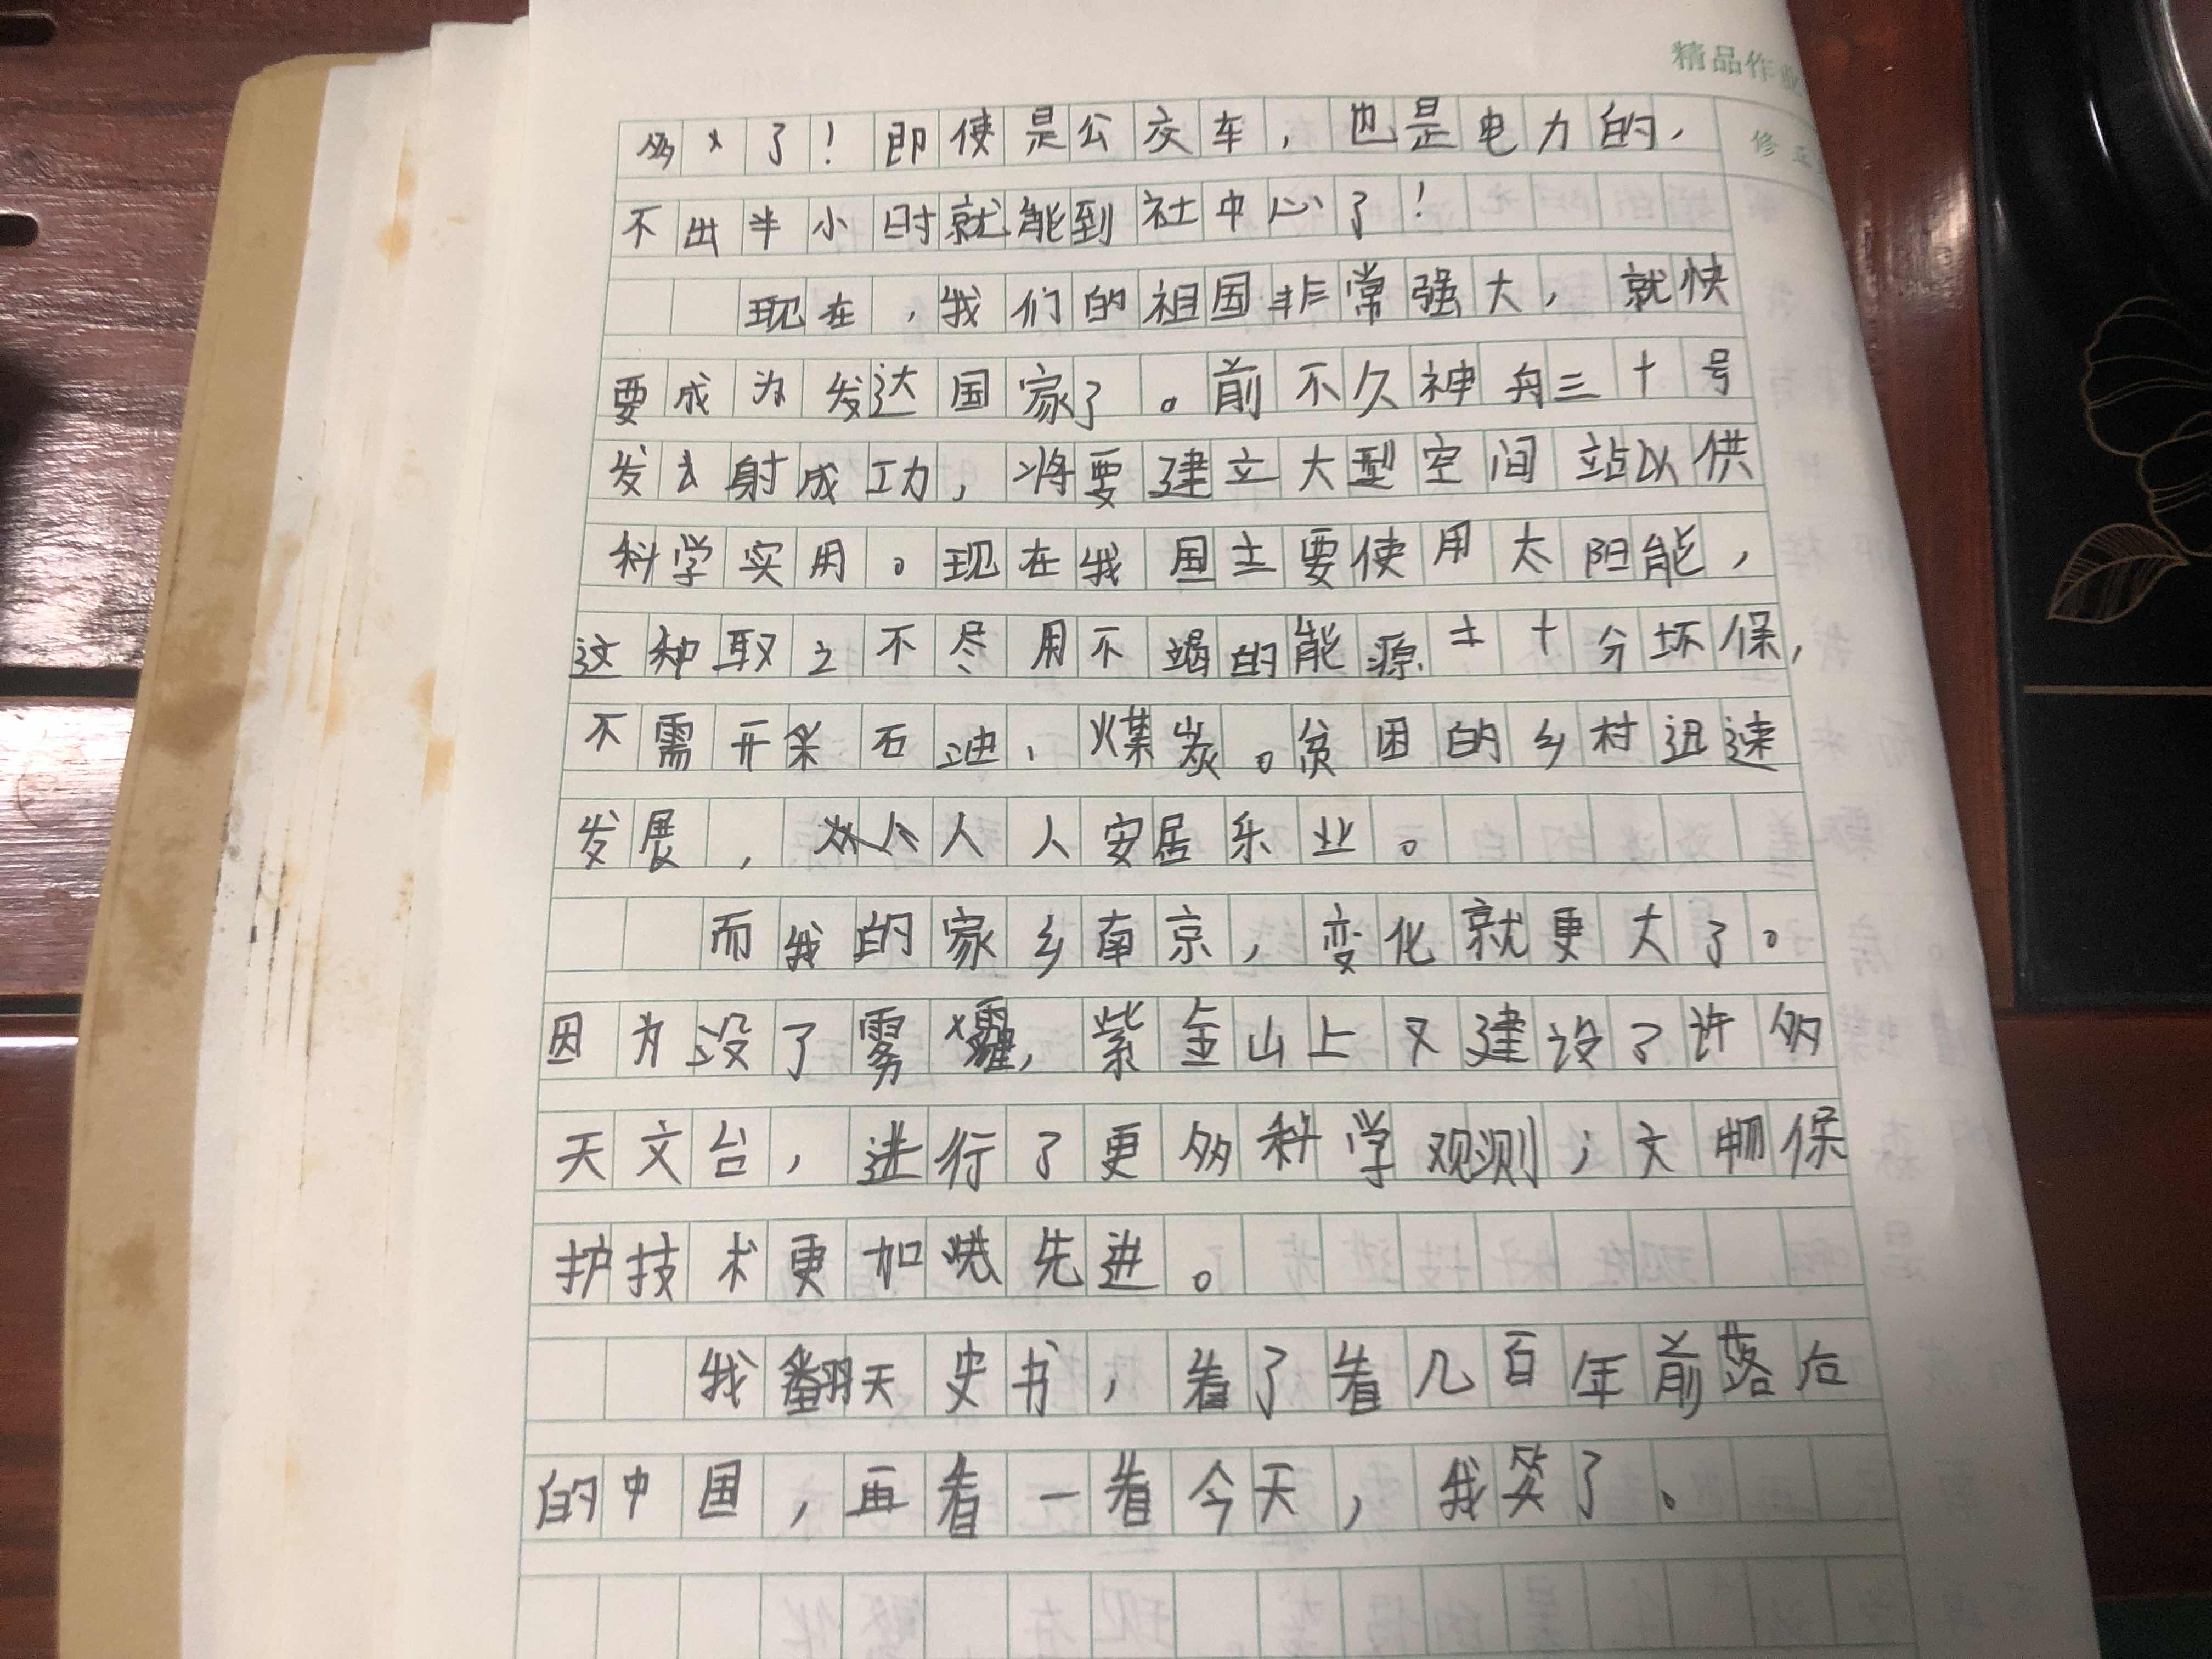 精品作业
修正
多了！即使是公交车，也是电力的，
不出半小时就能到社中心了！
现在，我们的祖国非常强大，就快
要成为发达国家了。前不久神舟三十号
发射成功，将要建立大型空间站以供
科学实用。现在我国主要使用太阳能，
这种取之不尽用不竭的能源十分环保，
不需开采石油、煤炭。贫困的乡村迅速
发展，人人安居乐业。
而我的家乡南京，变化就更大了。
因为没了雾霾，紫金山上又建设了许多
天文台，进行了更多科学观测；文物保
护技术更加先进。
我翻天史书，看了看几百年前落后
的中国，再看一看今天，我笑了。